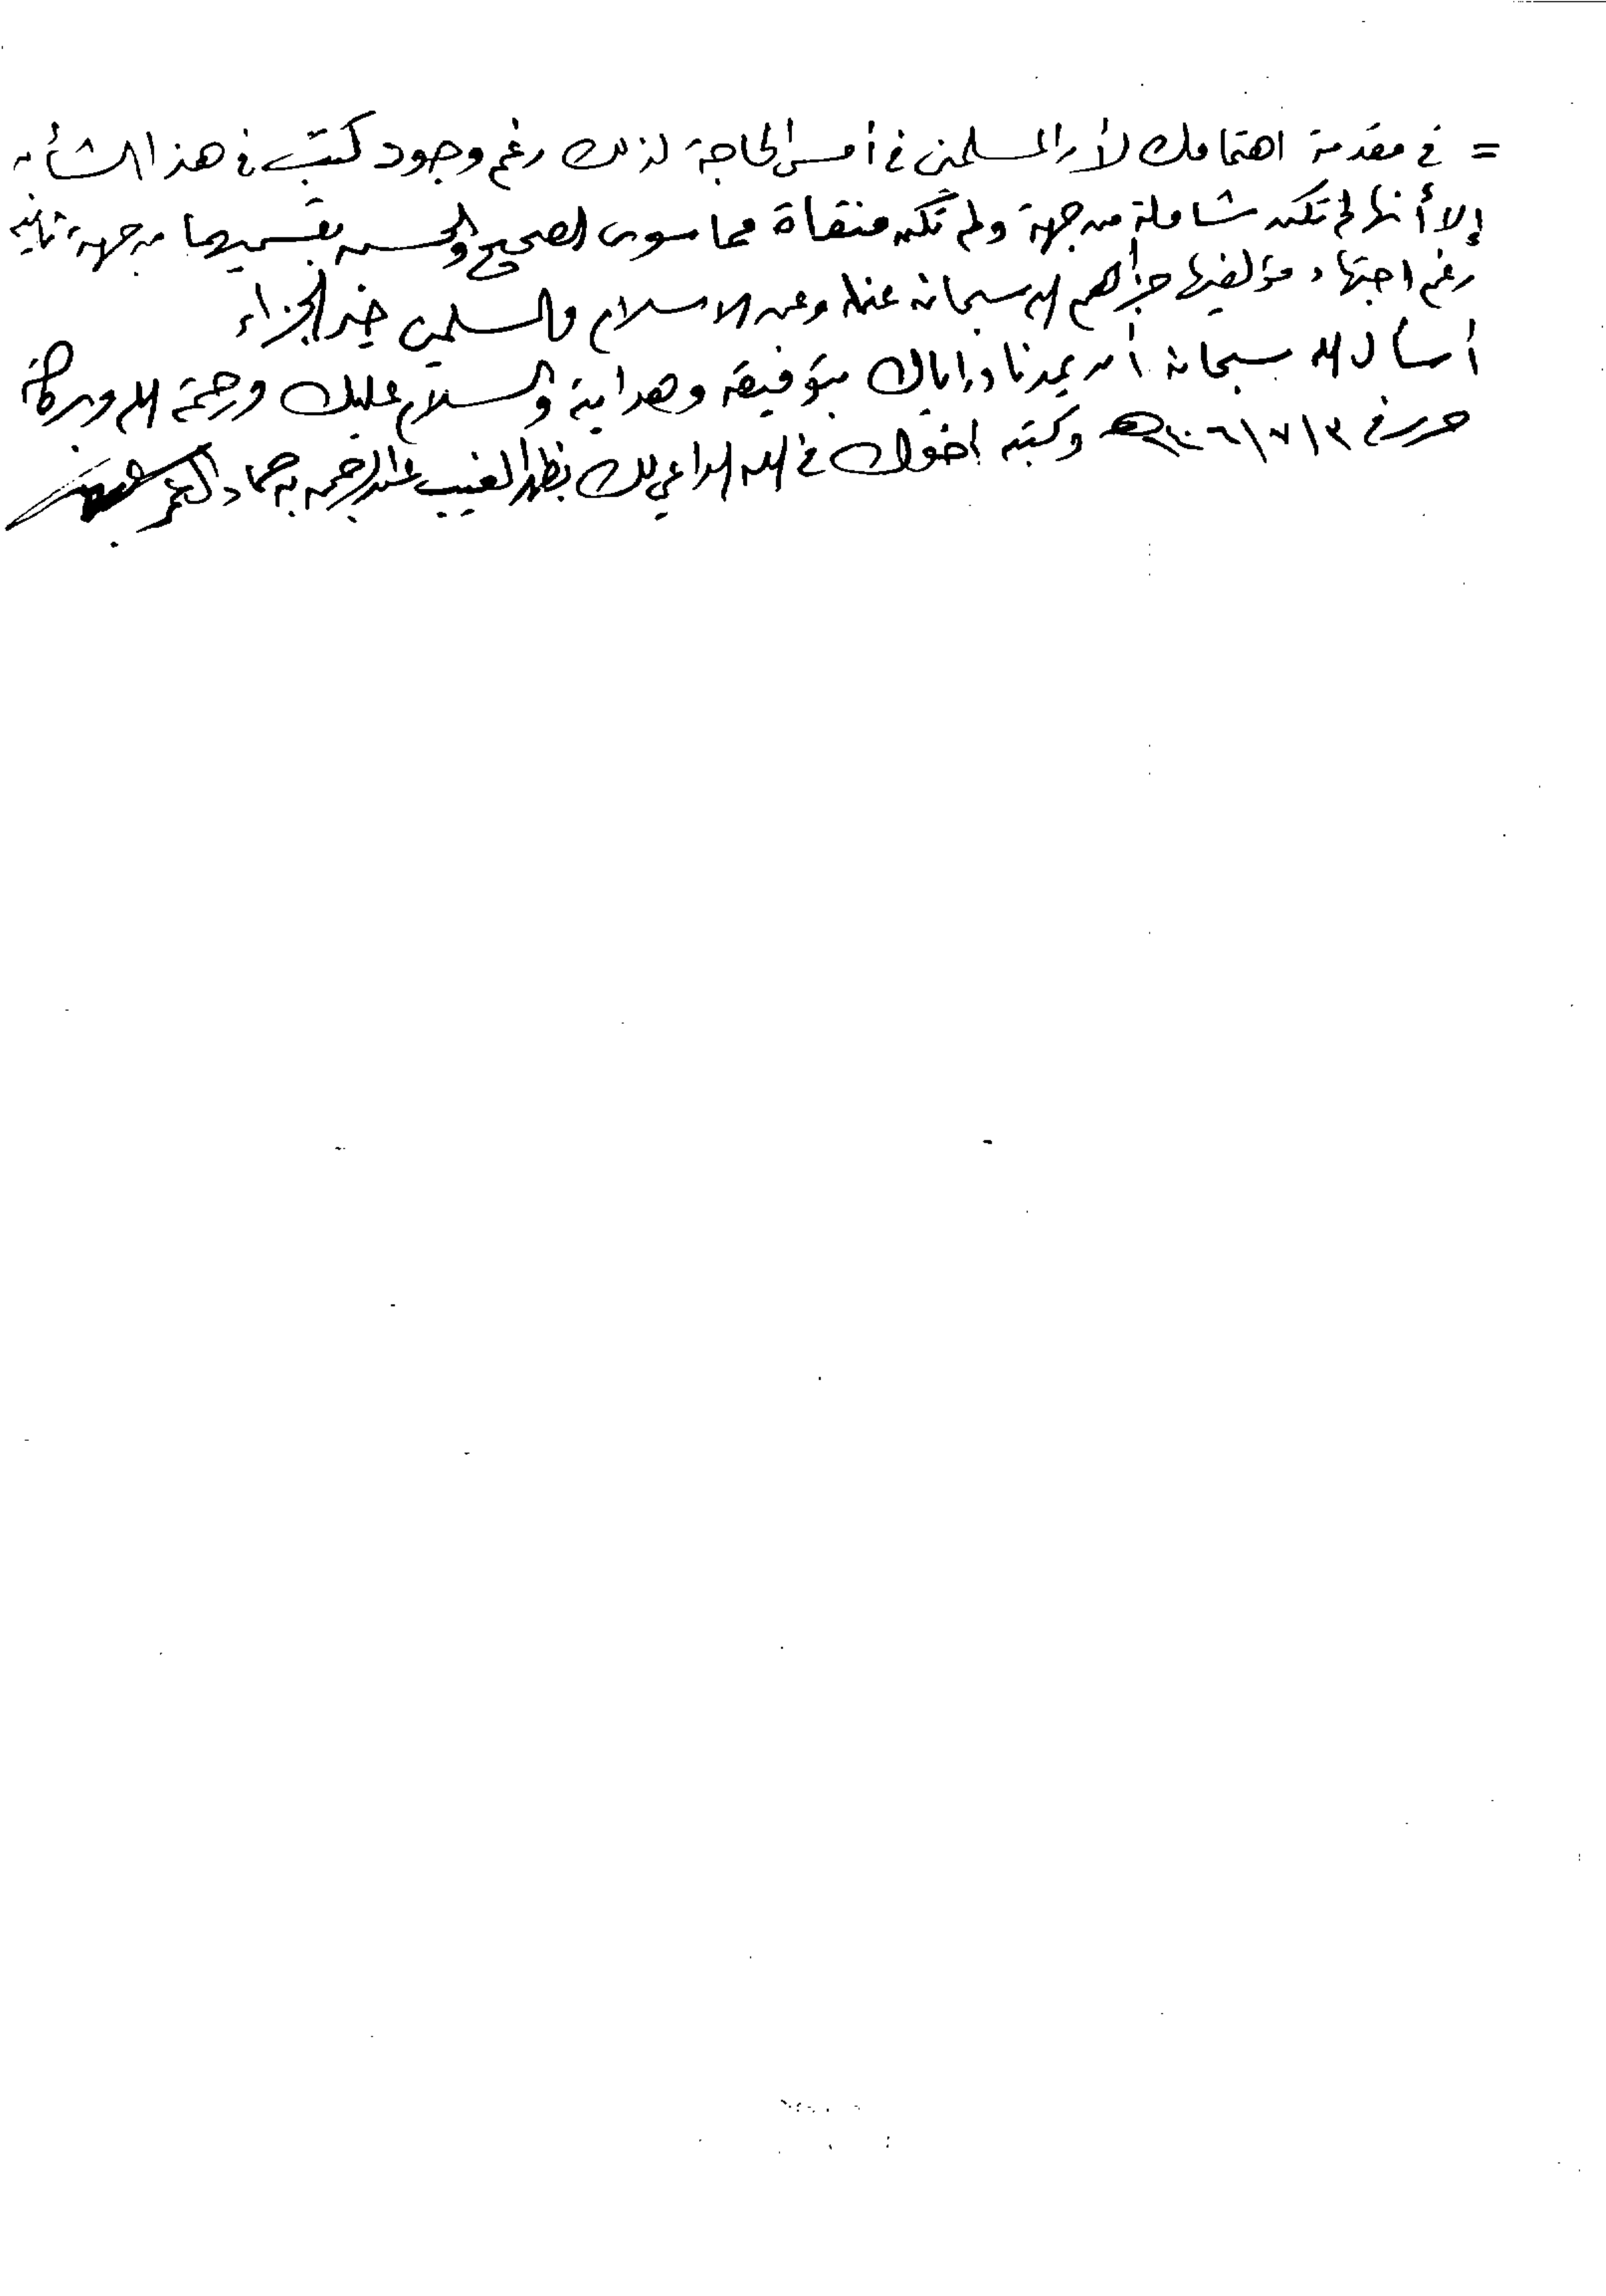 = في مقدمة اهتمامك لأن المسلمين في أمس الحاجة لذلك رغم وجود كتب في هذا الشأن
إلا أنها لم تكن شاملة من جهة ولم تكن منقاة مما سوى الصحيح والحسن بقسميهما من جهة ثانية
رغم اجتهاد مؤلفيها جزاهم الله سبحانه عنا وعن الاسلام والمسلمين خير الجزاء
أسأل الله سبحانه أن يمدنا وإياك بتوفيقه وهدايته والسلام عليك ورحمة الله وبركاته
حرر في ٣/٧/١٤٠٦هـ وكتبه أخوك في الله الداعي لك بظهر الغيب عبد الرحمن بن حماد العمر